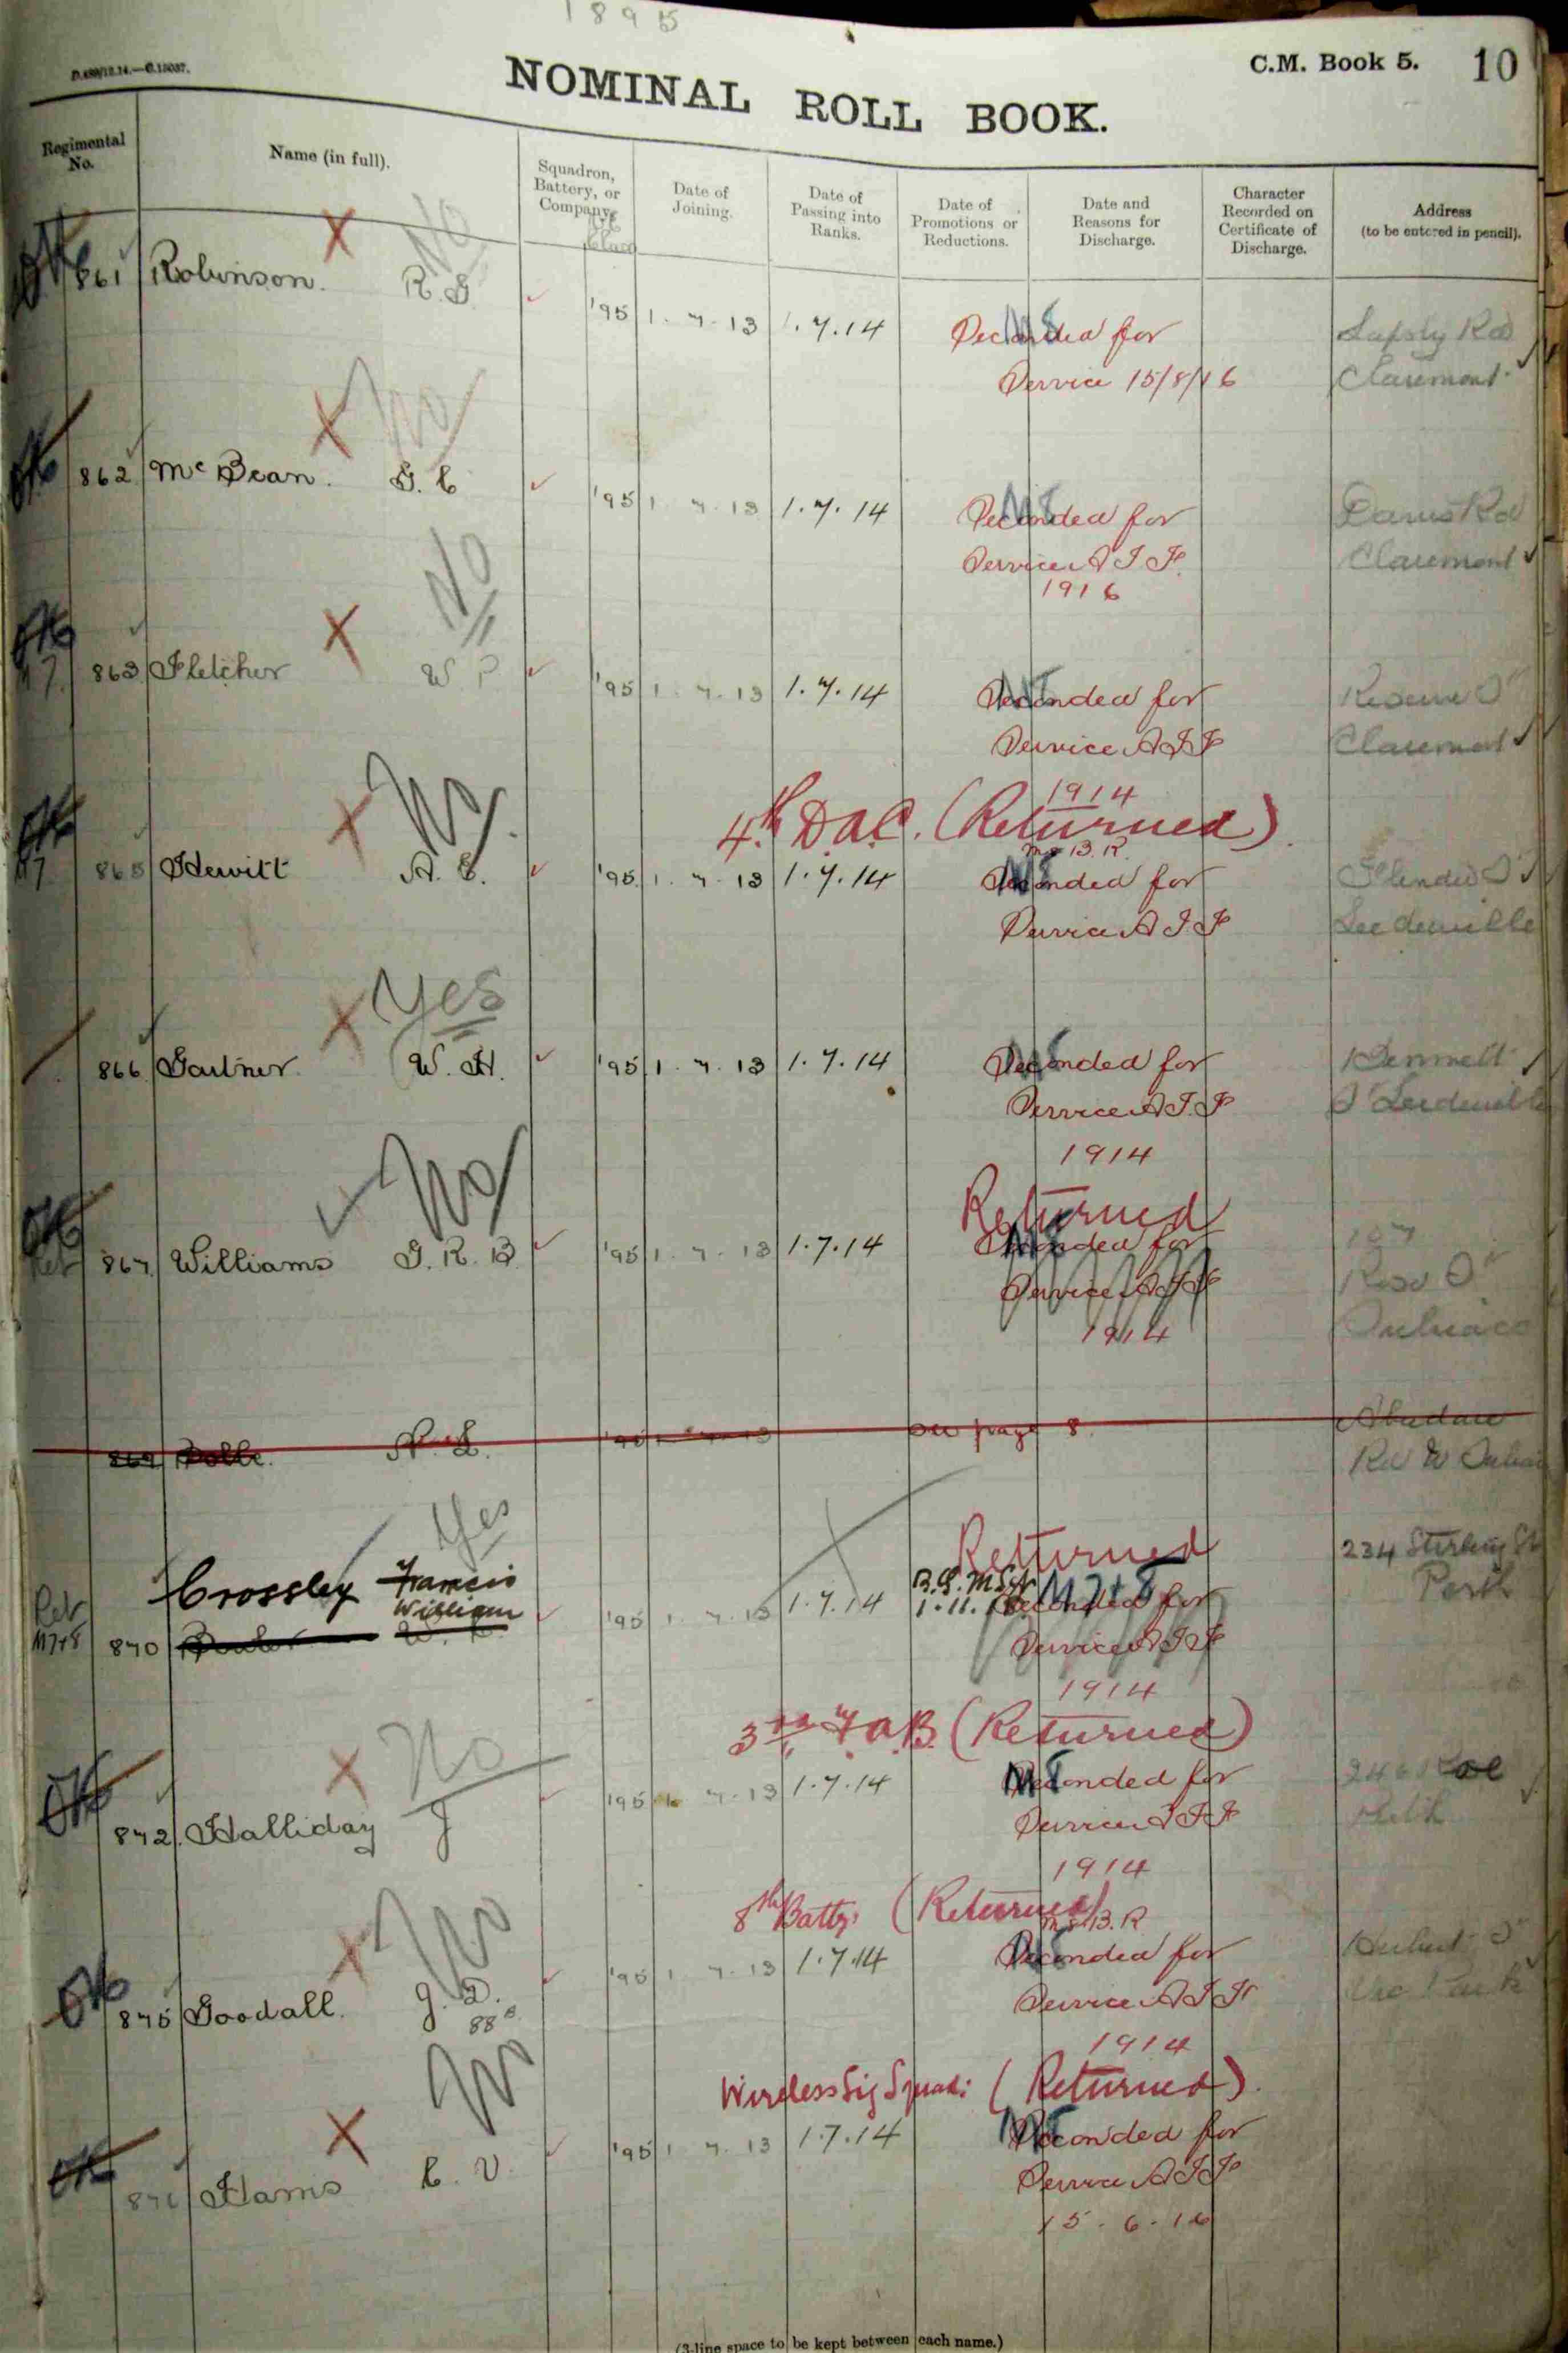 1895
D.489/12.14.—C.15037.
C.M. Book 5. 10
NOMINAL ROLL BOOK.
Regimental No.
Name (in full).
Squadron, Battery, or Company.
Date of Joining.
Date of Passing into Ranks.
Date of Promotions or Reductions.
Date and Reasons for Discharge.
Character Recorded on Certificate of Discharge.
Address (to be entered in pencil).
Class
No
861 Robinson. R. G '95 1. 7. 13 1. 7. 14 Seconded for
Service 15/8/16
Claremont
No
862 Mc Bean. G. C '95 1 7. 13 1. 7. 14 Seconded for
Service A I F.
1916
Claremont
No
863 Fletcher W. P '95 1 7. 13 1. 7. 14 Seconded for
Service A I F
Claremont
1914
No
4th D.A.C. (Returned)
M 8 B. R.
865 Hewitt A. E. '95 1. 7. 13 1. 7. 14 Seconded for
Service A I F
Leederville
Yes
866 Gartner W. H. '95 1. 7. 13 1. 7. 14 Seconded for
Service A.I.F
Leederville
1914
No
Returned
867 Williams G. R. B '95 1. 7. 13 1. 7. 14 Seconded for
Service A I F
1914
107
Subiaco
869 N. L. '95 1 7 13 See page 8
Yes
Returned
234 Stirling St
Perth
Crossley Francis
William
M7+8
1. 11.
Ret
M7+8 870 '95 1. 7. 13 1. 7. 14 Seconded for
Service A I F
1914
No
3rd F.A.B. (Returned)
872. Halliday J '95 7. 13 1. 7. 14 Seconded for
Service A I F
1914
No
8th Batty. (Returned)
M 8 B. R
875 Goodall. J. D. '95 1 7. 13 1. 7. 14 Seconded for
88
Service A I F
1914
No
Wireless Sig Squad: (Returned)
C. V. '95 1 7. 13 1. 7. 14 Seconded for
Service A I F
15. 6. 16
(3-line space to be kept between each name.)